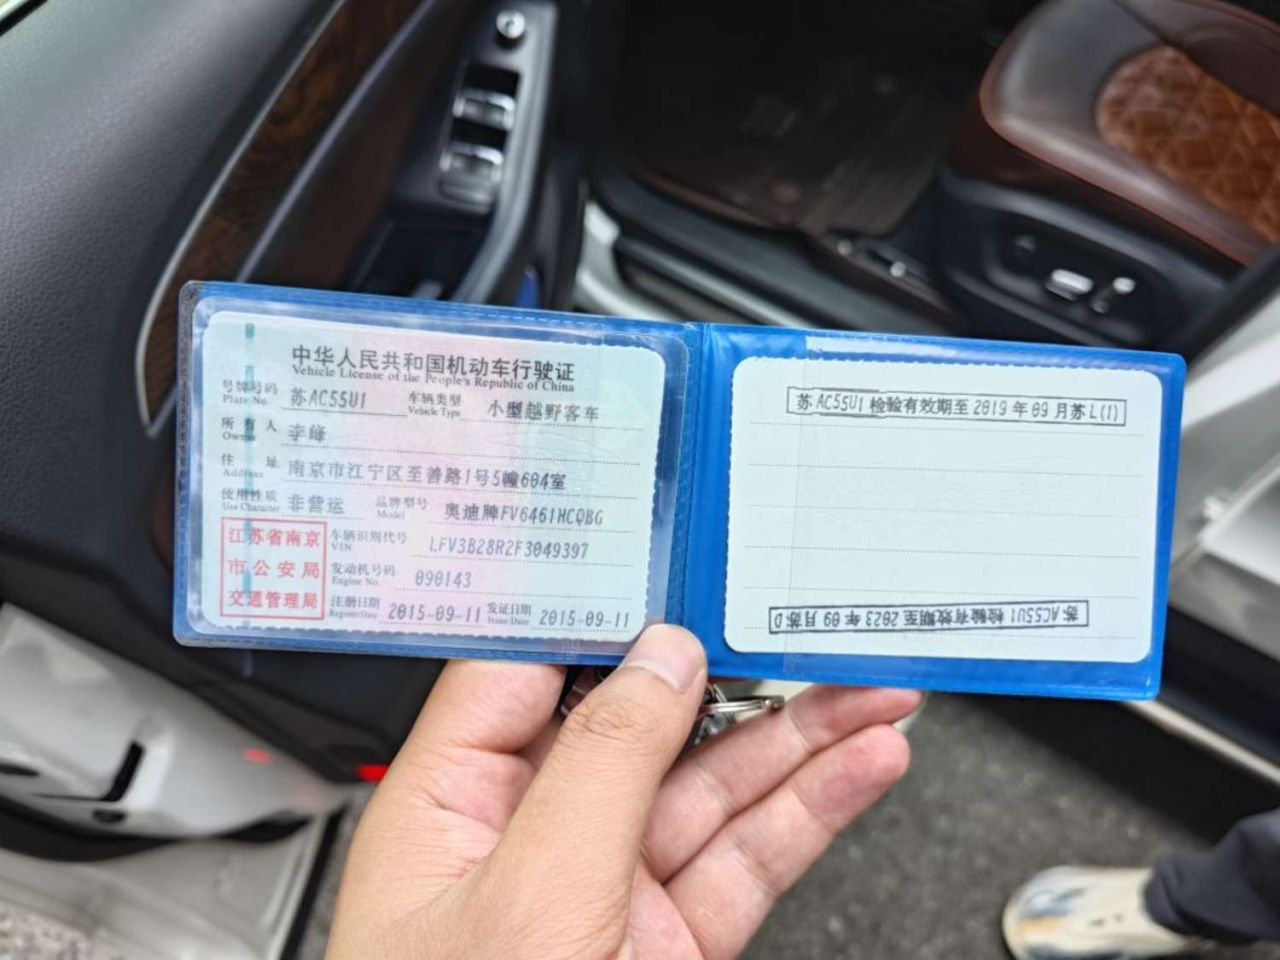 中华人民共和国机动车行驶证
Vehicle License of the People's Republic of China
号牌号码 苏AC55U1 车辆类型 小型越野客车
Plate No. Vehicle Type
所有人 李峰
Owner
住址 南京市江宁区至善路1号5幢604室
Address
使用性质 非营运 品牌型号 奥迪牌FV6461HCQBG
Use Character Model
江苏省南京
市公安局
交通管理局
车辆识别代号 LFV3B28R2F3049397
VIN
发动机号码 090143
Engine No.
注册日期 2015-09-11 发证日期 2015-09-11
Register Date Issue Date
苏AC55U1 检验有效期至 2019 年 09 月苏L(1)
苏AC55U1 检验有效期至 2023 年 09 月苏D